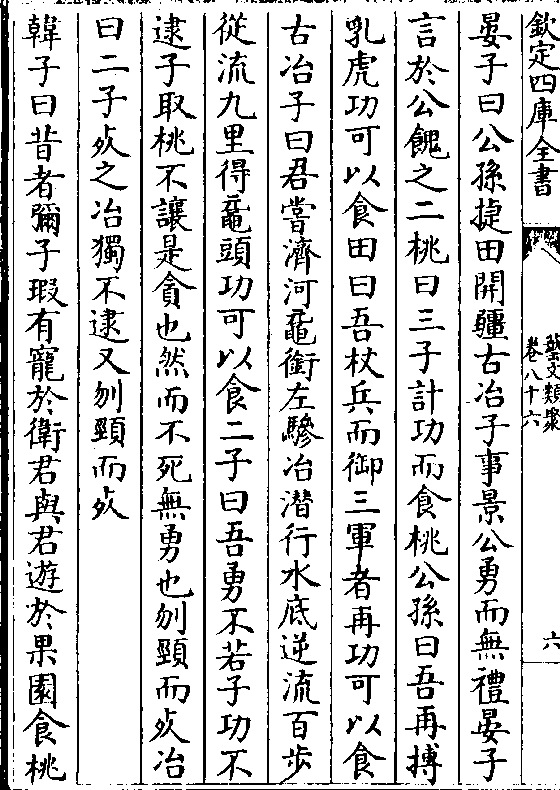 欽定四庫全書
藝文類聚
卷八十六
六
晏子曰公孫㨗田開疆古冶子事景公勇而無禮晏子
言於公餽之二桃曰三子計功而食桃公孫曰吾再搏
乳虎功可以食田曰吾杖兵而御三軍者再功可以食
古冶子曰君嘗濟河黿銜左驂冶潜行水底逆流百歩
從流九里得黿頭功可以食二子曰吾勇不若子功不
逮子取桃不讓是貪也然而不死無勇也刎頸而死冶
曰二子死之冶獨不逮又刎頸而死
韓子曰昔者彌子瑕有寵於衛君與君遊於果園食桃